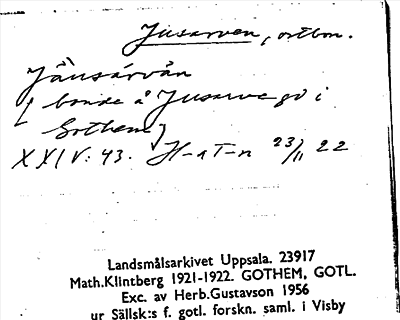 Jusarven, ortbon.
Jåusárvån
[ bonde å Jusarve gd i
Gothem]
XXIV: 43. H-a T-n 23/11 22
Landsmålsarkivet Uppsala. 23917
Math.Klintberg 1921-1922. GOTHEM, GOTL.
Exc. av Herb.Gustavson 1956
ur Sällsk:s f. gotl. forskn. saml. i Visby